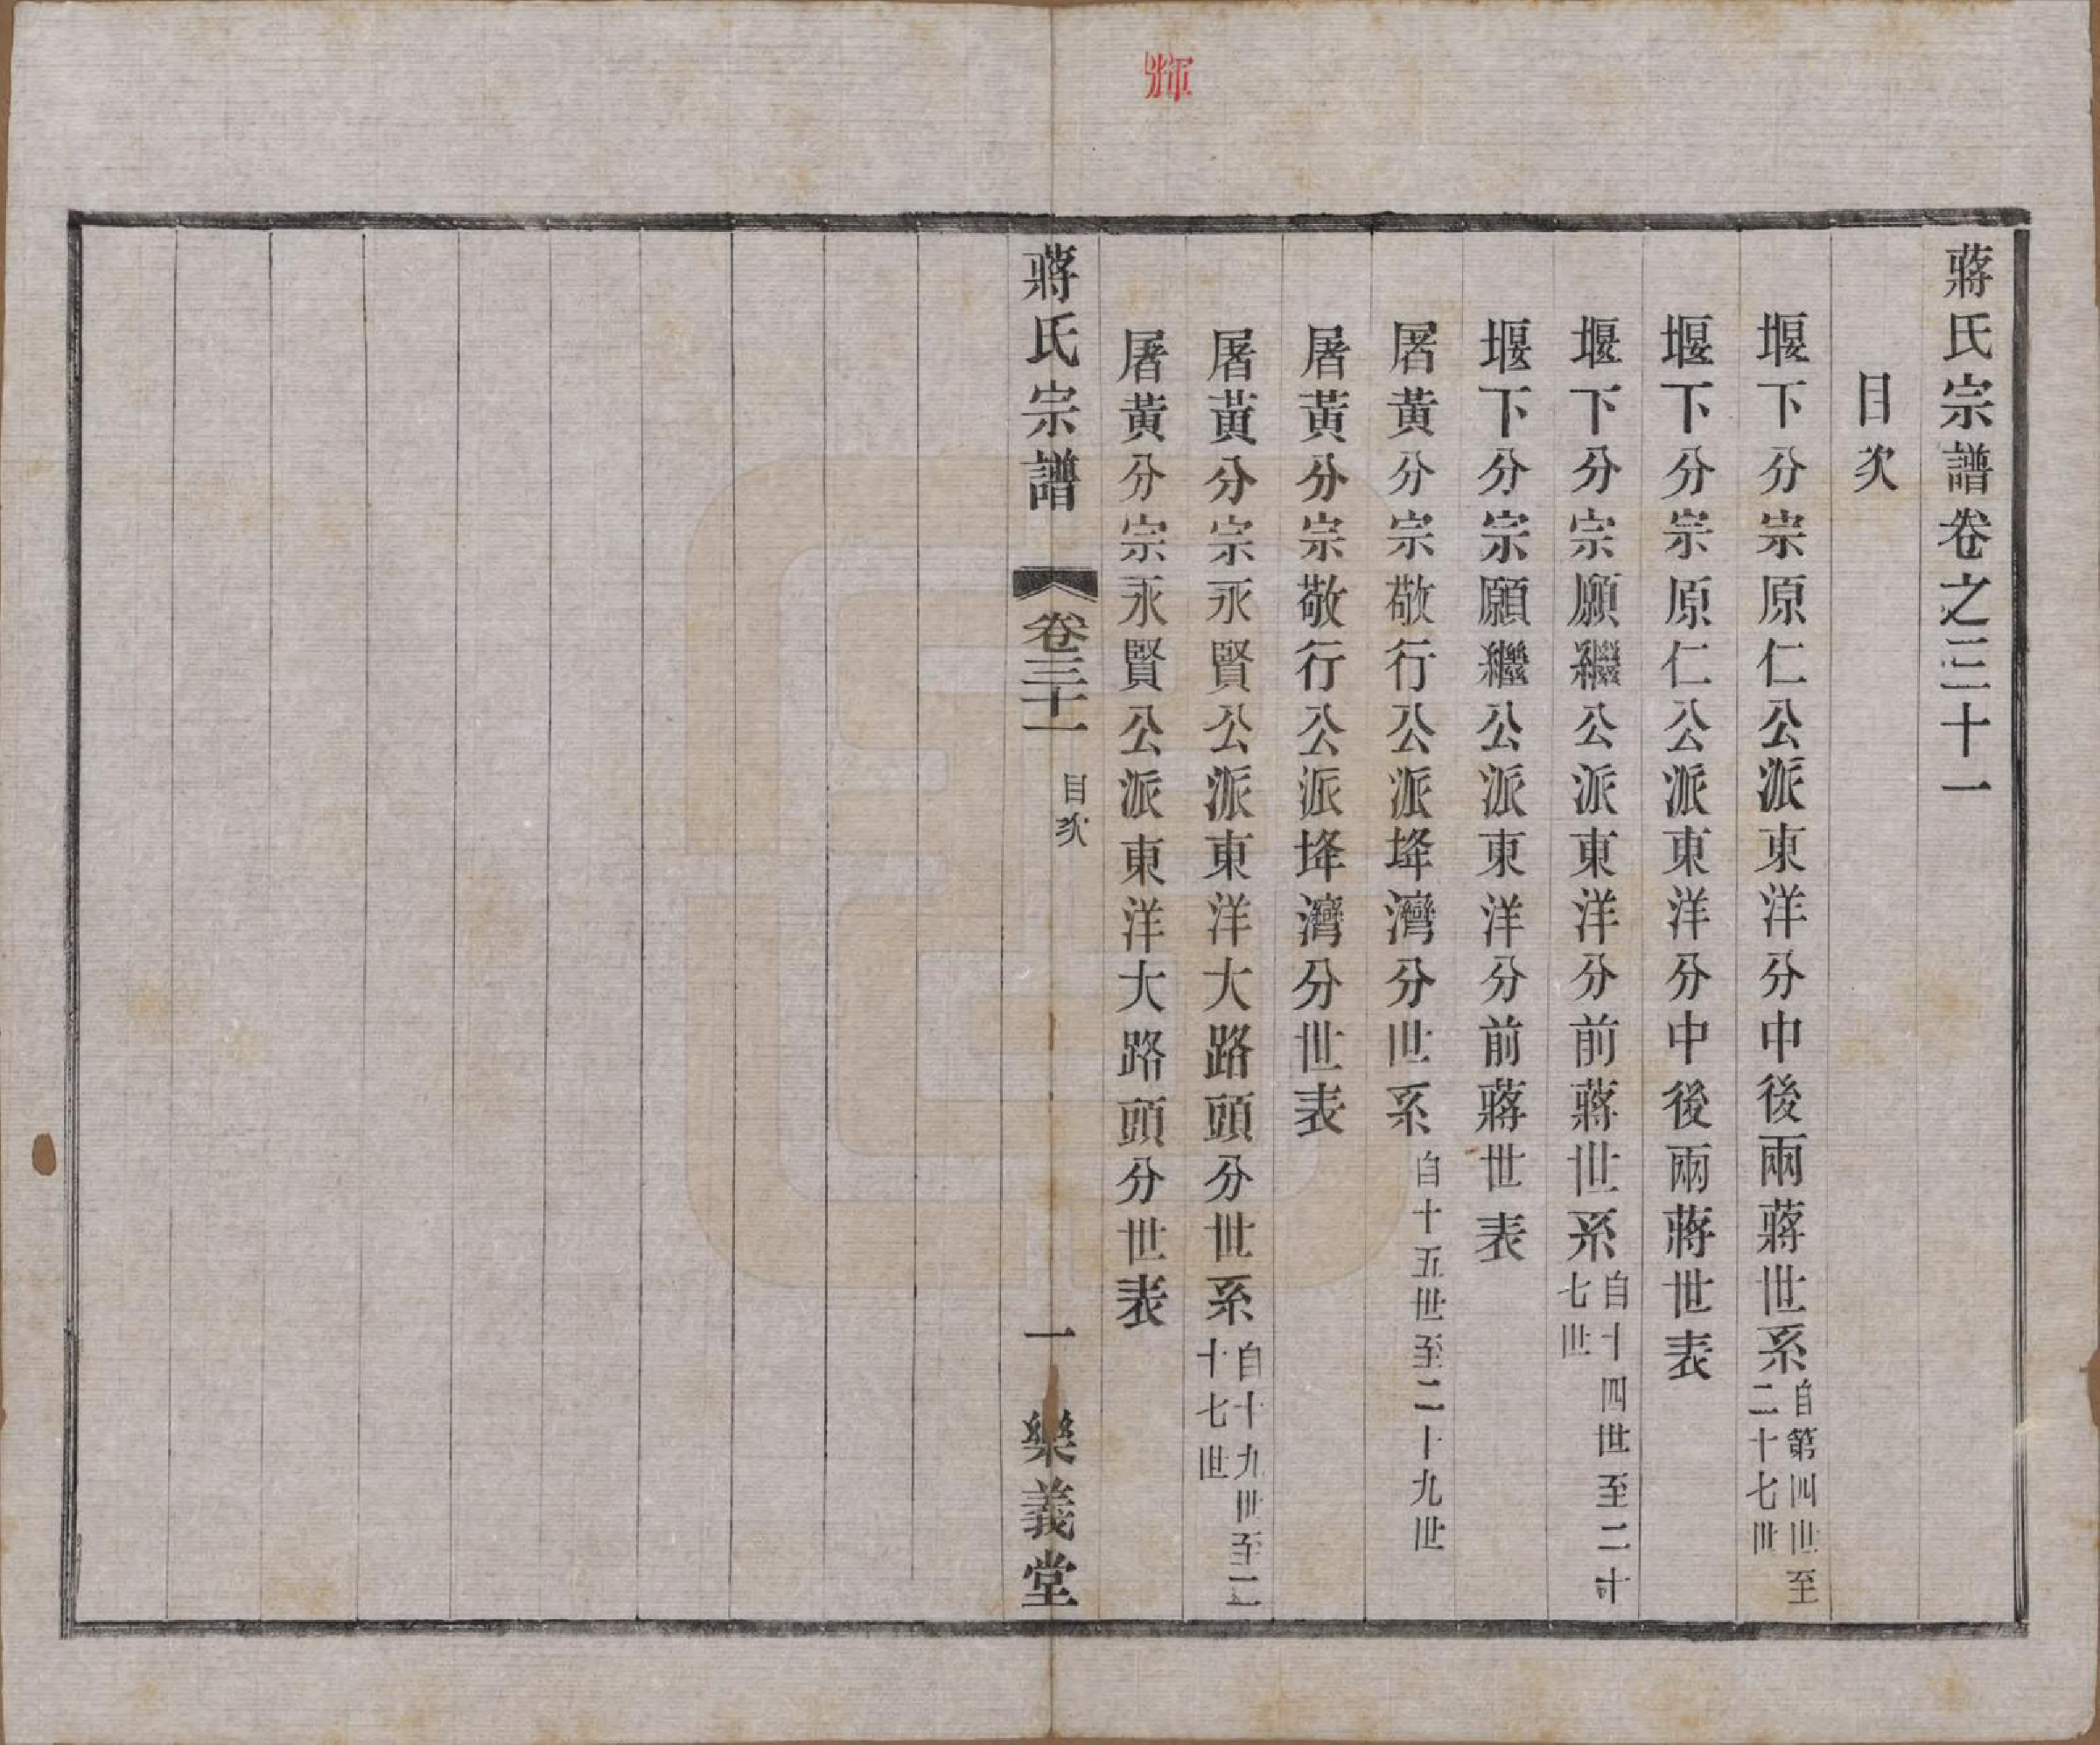 輝
蔣氏宗譜卷之三十一
目次
堰下分宗原仁公派東洋分中後兩蔣世系自第四世至二十七世
堰下分宗原仁公派東洋分中後兩蔣世表
堰下分宗願繼公派東洋分前蔣世系自十四世至二十七世
堰下分宗願繼公派東洋分前蔣世表
屠黃分宗敬行公派埄灣分世系自十五世至二十九世
屠黃分宗敬行公派埄灣分世表
屠黃分宗永賢公派東洋大路頭分世系自十九世至二十七世
屠黃分宗永賢公派東洋大路頭分世表
蔣氏宗譜 卷三十一 目次 一 樂義堂